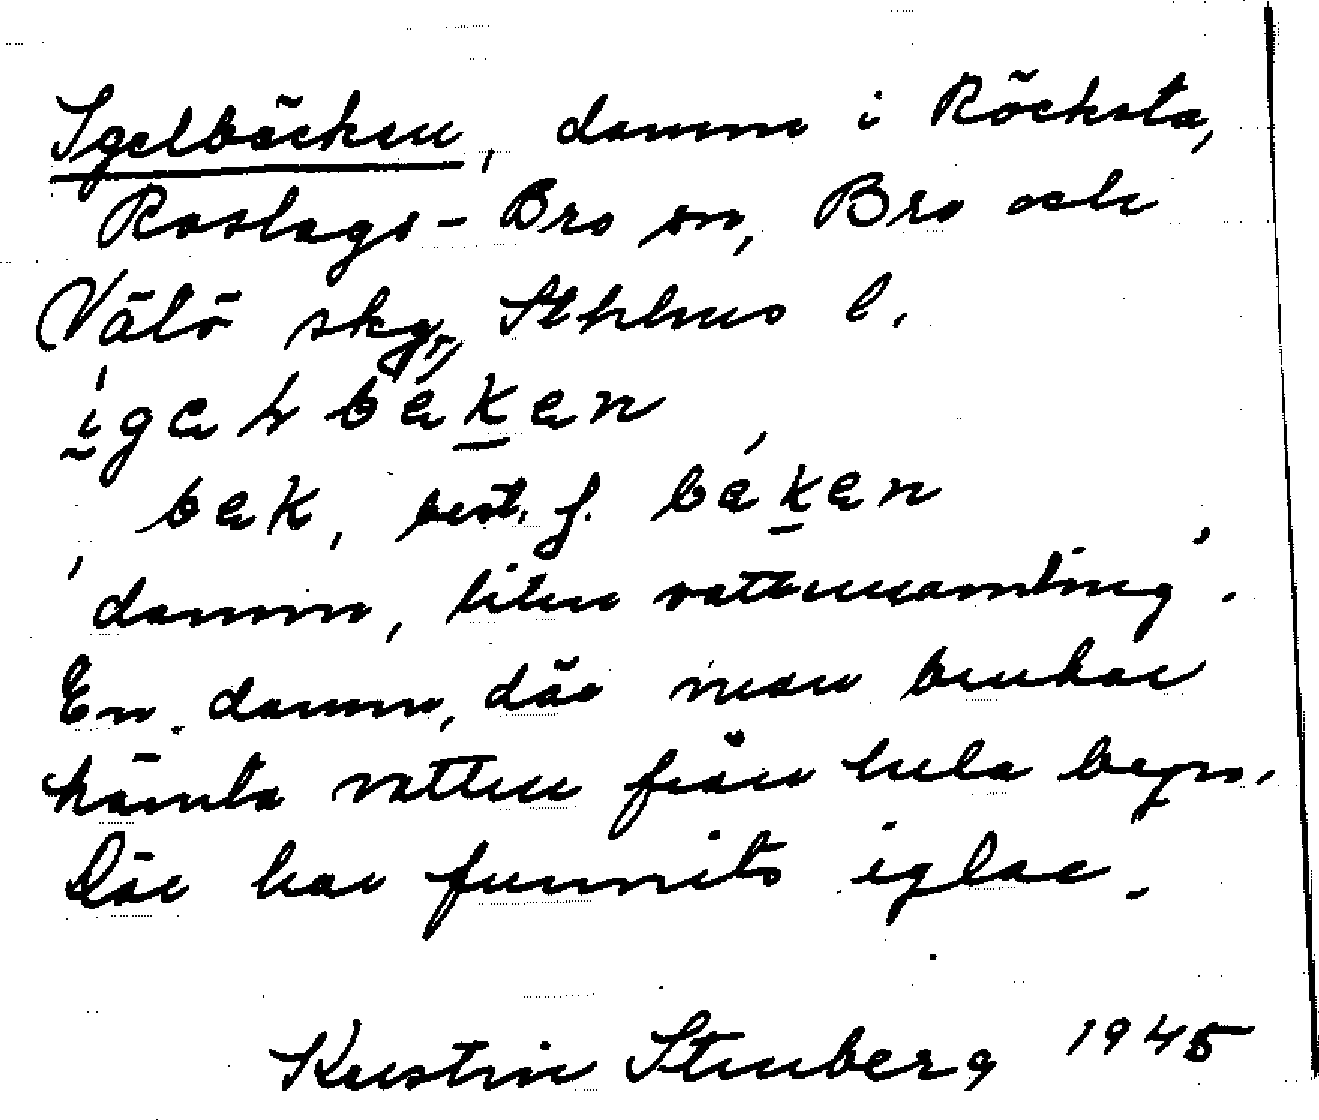 Igelbäcken, damm i Röcksta,
Roslags-Bro sn, Bro och
Vätö skg, Sthlms l.
bek, best. f. beken
damm, liten vattensamling.
En damm, där man brukar
hämta vatten från hela byn.
Där har funnits iglar.
Kerstin Stenberg 1945